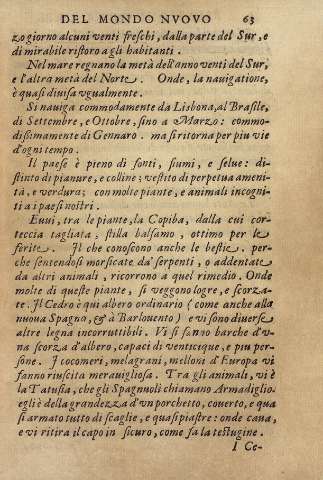 DEL MONDO NVOVO 63
zogiorno alcuni venti freschi, dalla parte del Sur, e
di mirabile ristoro a gli habitanti.
Nel mare regnano la metà dell'anno venti del Sur,
e l'altra metà del Norte. Onde, la nauigatione,
è quasi diuisa vgualmente.
Si nauiga commodamente da Lisbona, al Brasile,
di Settembre, e Ottobre, sino a Marzo: commo-
dissimamente di Gennaro. ma si ritorna per piu vie
d'ogni tempo.
Il paese è pieno di fonti, fiumi, e selue: di-
stinto di pianure, e colline: vestito di perpetua ameni-
tà, e verdura; con molte piante, e animali incogni-
ti a i paesi nostri.
Euui, tra le piante, la Copiba, dalla cui cor-
teccia tagliata, stilla balsamo, ottimo per le
ferite. Il che conoscono anche le bestie. per-
che sentendosi morsicate da' serpenti, o addentate
da altri animali, ricorrono a quel rimedio. Onde
molte di queste piante, si veggono logre, e scorza-
te. Il Cedro è qui albero ordinario (come anche alla
nuoua Spagno, & à Barlouento) e vi sono diuerse
altre legna incorruttibili. Vi si fanno barche d'v-
na scorza d'albero, capaci di venticique, e piu per-
sone. I cocomeri, melagrani, melloni d'Europa vi
fanno riuscita merauigliosa. Tra gli animali, vi è
la Tatusia, che gli Spagnuoli chiamano Armadiglio.
egli è della grandezza d'vn porchetto, couerto, e qua
si armato tutto di scaglie, e quasi piastre: onde caua,
e vi ritira il capo in sicuro, come fa la testugine.
I Ce-